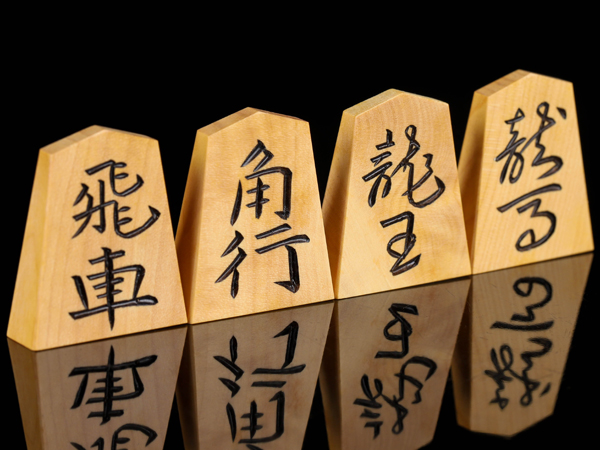 飛車
角行
龍王
龍馬